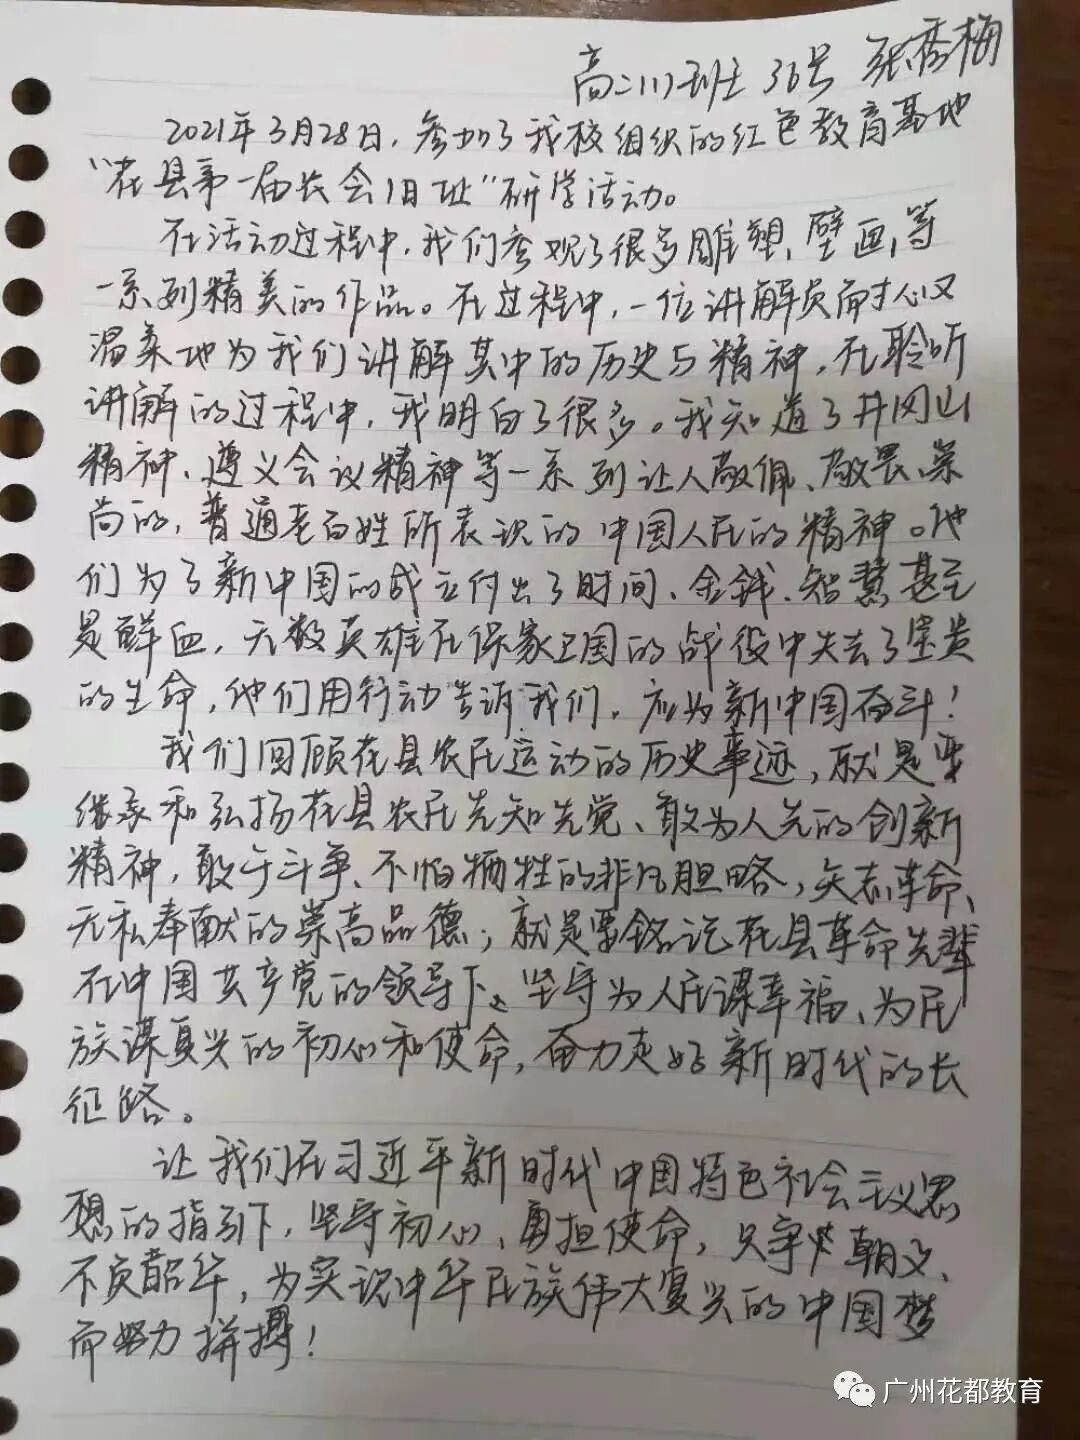 高二(1)班 36号 张秀梅
2021年3月28日，参加了我校组织的红色教育基地
“花县第一届农会旧址”研学活动。
在活动过程中，我们参观了很多雕塑、壁画，等
一系列精美的作品。在过程中，一位讲解员耐心又
温柔地为我们讲解其中的历史与精神，在聆听
讲解的过程中，我明白了很多。我知道了井冈山
精神、遵义会议精神等一系列让人敬佩、敬畏、崇
尚的，普通老百姓所表现的中国人民的精神。他
们为了新中国的成立付出了时间、金钱、智慧甚至
是鲜血，无数英雄在保家卫国的战役中失去了宝贵
的生命，他们用行动告诉我们，应为新中国奋斗！
我们回顾花县农民运动的历史事迹，就是要
继承和弘扬花县农民先知先觉、敢为人先的创新
精神，敢于斗争、不怕牺牲的非凡胆略，矢志革命、
无私奉献的崇高品德；就是要铭记花县革命先辈
在中国共产党的领导下，坚守为人民谋幸福、为民
族谋复兴的初心和使命，奋力走好新时代的长
征路。
让我们在习近平新时代中国特色社会主义思
想的指引下，坚守初心、勇担使命，只争朝夕、
不负韶华，为实现中华民族伟大复兴的中国梦
而努力拼搏！
广州花都教育